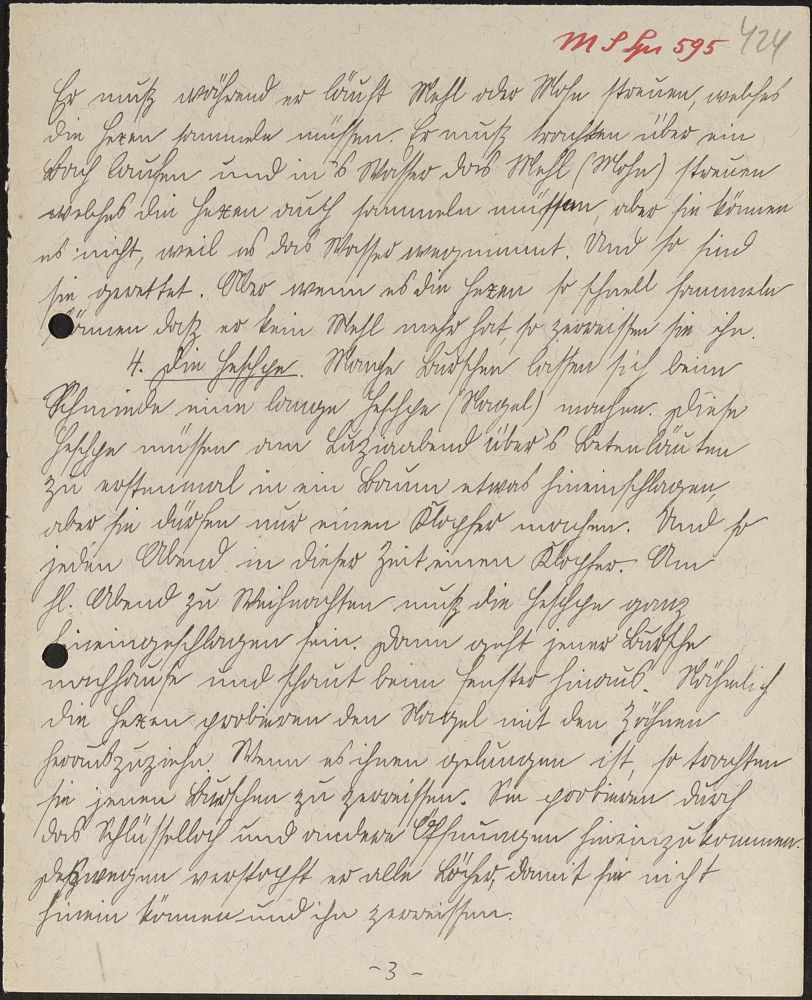 M S Spr 595 424
Er muß während er läuft Mehl oder Mohn streuen, welches
die Hexen sammeln müssen. Er muß trachten über ein
Bach laufen und in's Wasser das Mehl (Mohn) streuen
welches die Hexen auch sammeln müssen, aber sie können
es nicht, weil es das Wasser wegnimmt. Und so sind
sie gerettet. Aber wenn es die Hexen so schnell sammeln
können daß er kein Mehl mehr hat so zerreissen sie ihn.
4. Die Heschpe. Mange Burschen lassen sich beim
Schmiede eine lange Heschpe (Nagel) machen. Diese
Heschpe müssen am Luziaabend über's Betenläuten
zu erstenmal in ein Baum etwas hineinschlagen,
aber sie dürfen nur einen Klopfer machen. Und so
jeden Abend in dieser Zeit einen Klopfer. Am
hl. Abend zu Weihnachten muß die Heschpe ganz
hineingeschlagen sein. Dann geht jener Bursche
nachhause und schaut beim Fenster hinaus. Nähmlich
die Hexen probieren den Nagel mit den Zähnen
herauszuziehn. Wenn es ihnen gelungen ist, so trachten
sie jenen Burschen zu zerreissen. Sie probieren durch
das Schlüsselloch und andere Öffnungen hineinzukommen.
Deßwegen verstopft er alle Löcher, damit sie nicht
hinein können und ihn zerreissen.
- 3 -